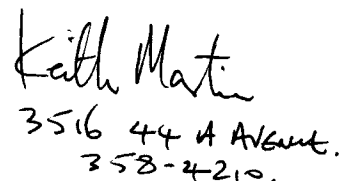 Keith Martin
3516 44 A AVENUE.
358-4210.